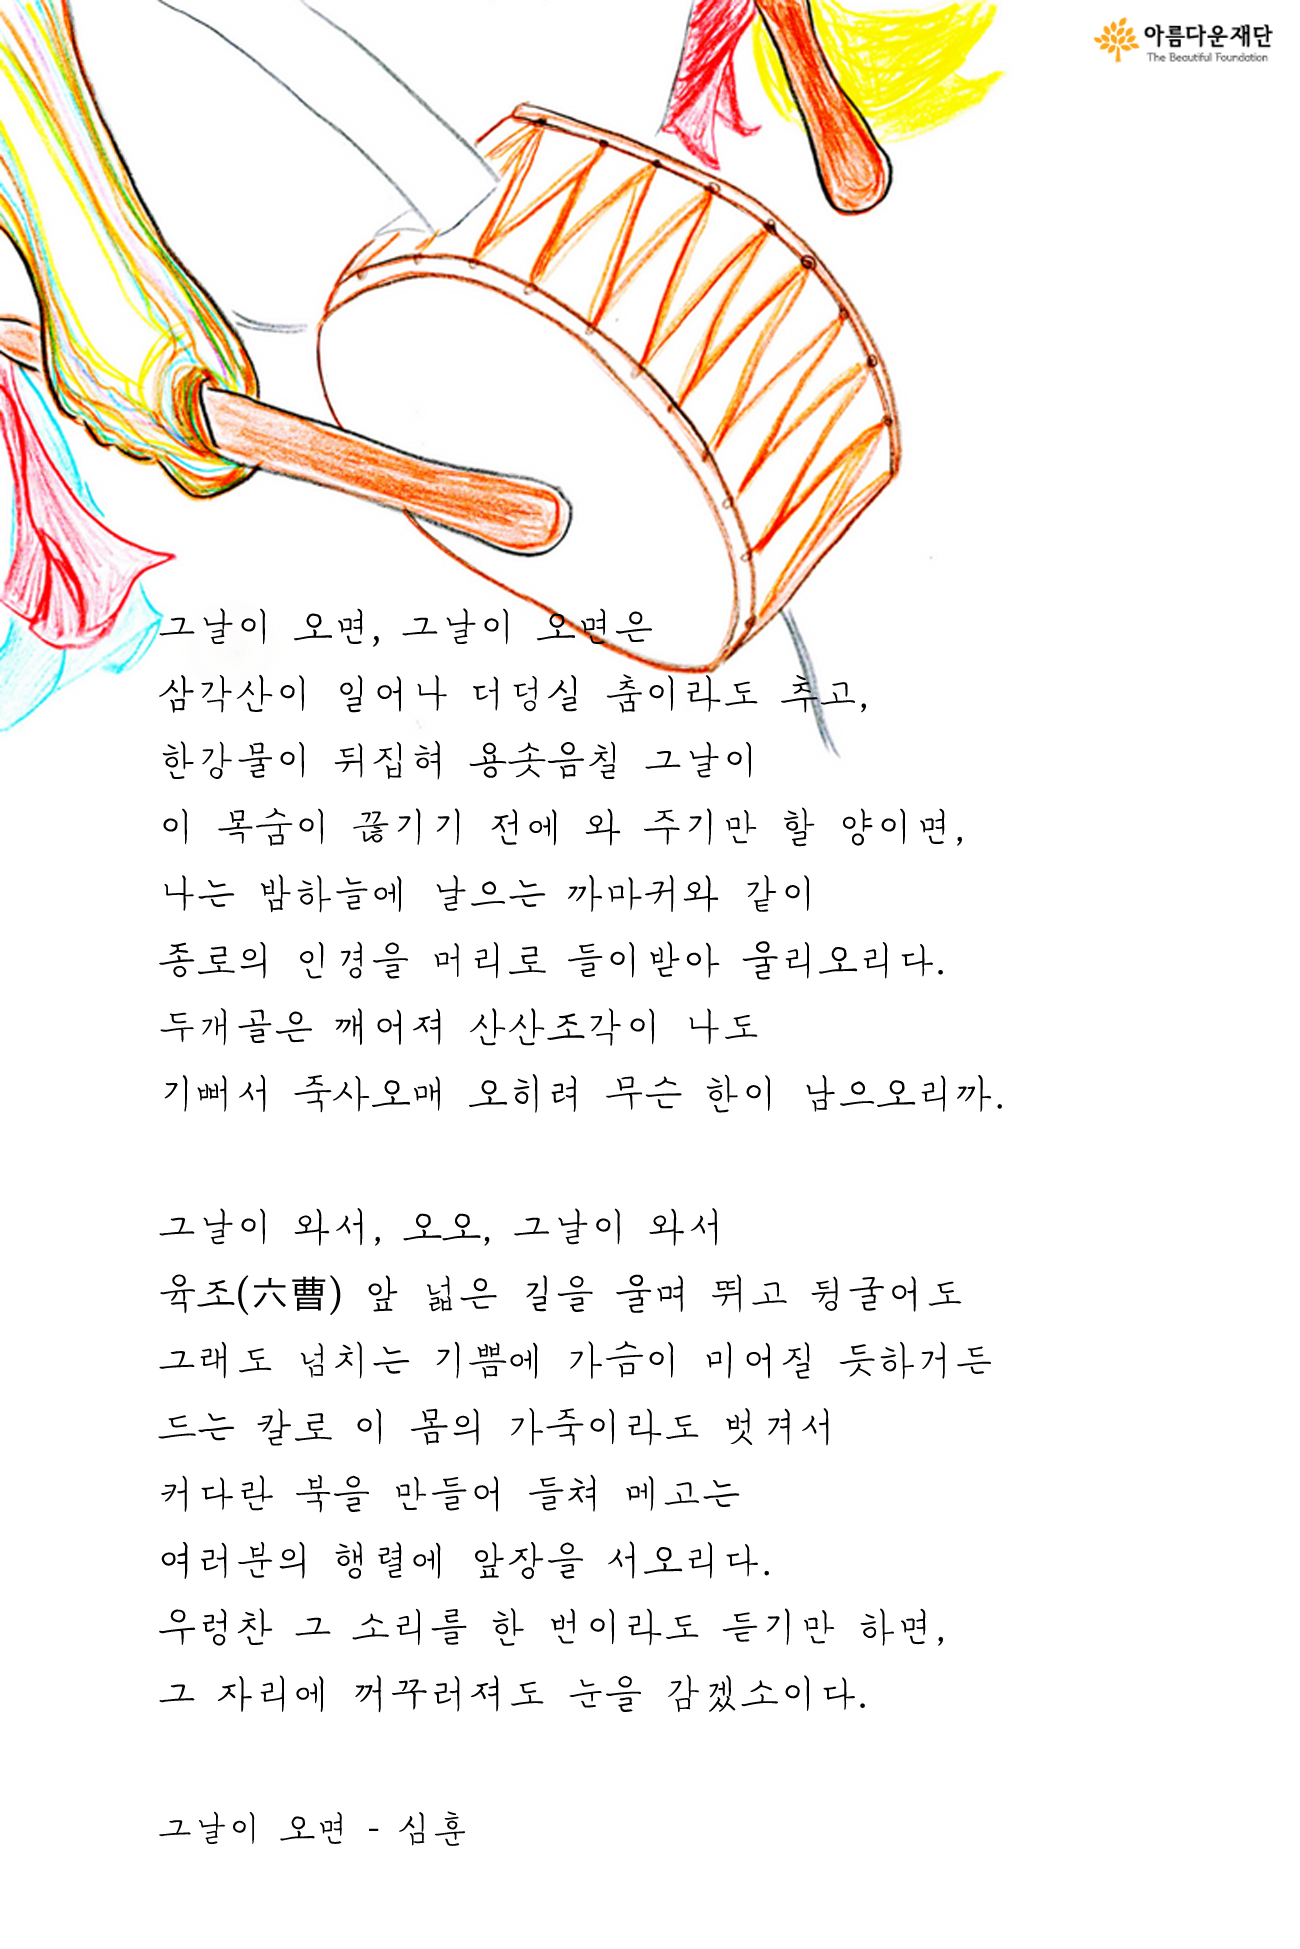 아름다운재단
The Beautiful Foundation
그날이 오면, 그날이 오면은
삼각산이 일어나 더덩실 춤이라도 추고,
한강물이 뒤집혀 용솟음칠 그날이
이 목숨이 끊기기 전에 와 주기만 할 양이면,
나는 밤하늘에 날으는 까마귀와 같이
종로의 인경을 머리로 들이받아 울리오리다.
두개골은 깨어져 산산조각이 나도
기뻐서 죽사오매 오히려 무슨 한이 남으오리까.
그날이 와서, 오오, 그날이 와서
육조(六曹) 앞 넓은 길을 울며 뛰고 뒹굴어도
그래도 넘치는 기쁨에 가슴이 미어질 듯하거든
드는 칼로 이 몸의 가죽이라도 벗겨서
커다란 북을 만들어 들쳐 메고는
여러분의 행렬에 앞장을 서오리다.
우렁찬 그 소리를 한 번이라도 듣기만 하면,
그 자리에 꺼꾸러져도 눈을 감겠소이다.
그날이 오면 - 심훈